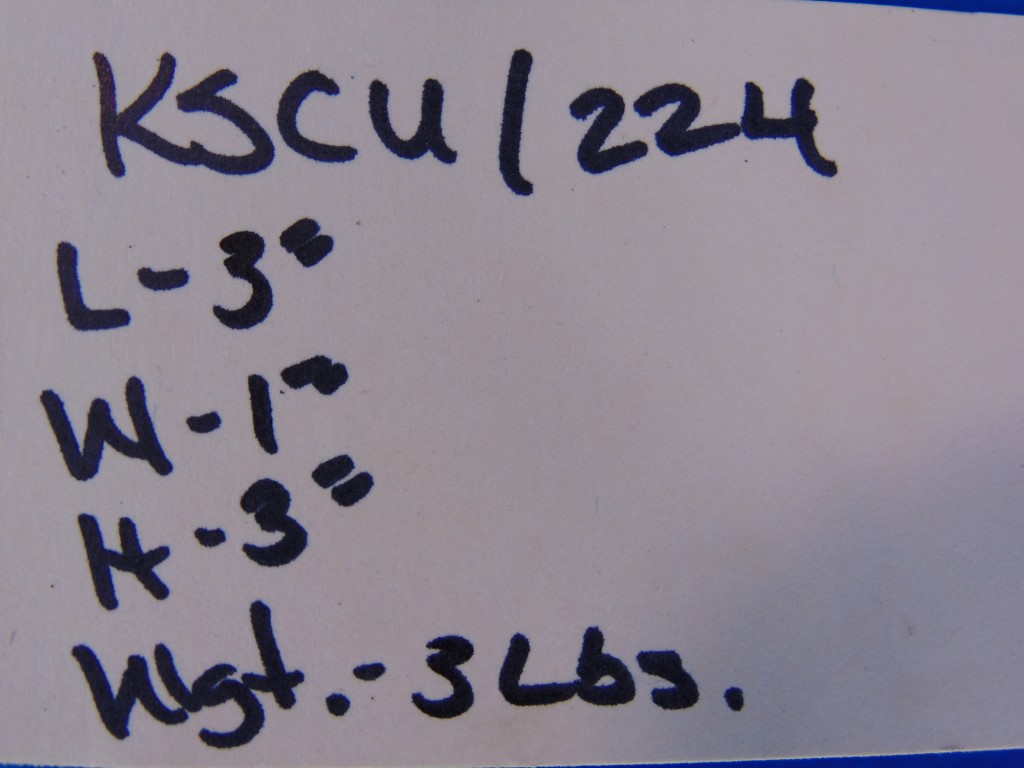 KSCU/224
L-3"
W-1"
H-3"
Wgt.-3Lbs.